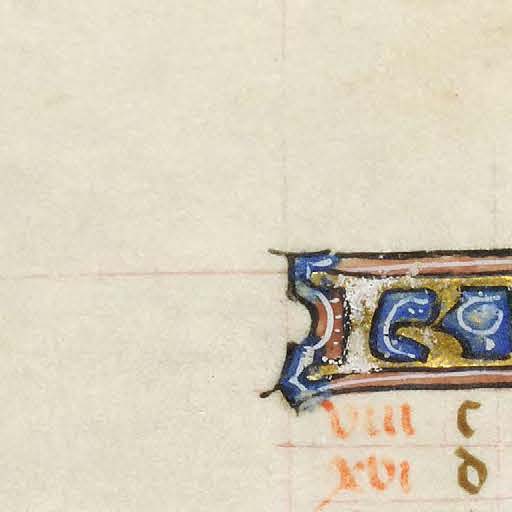 viii c
xvi d